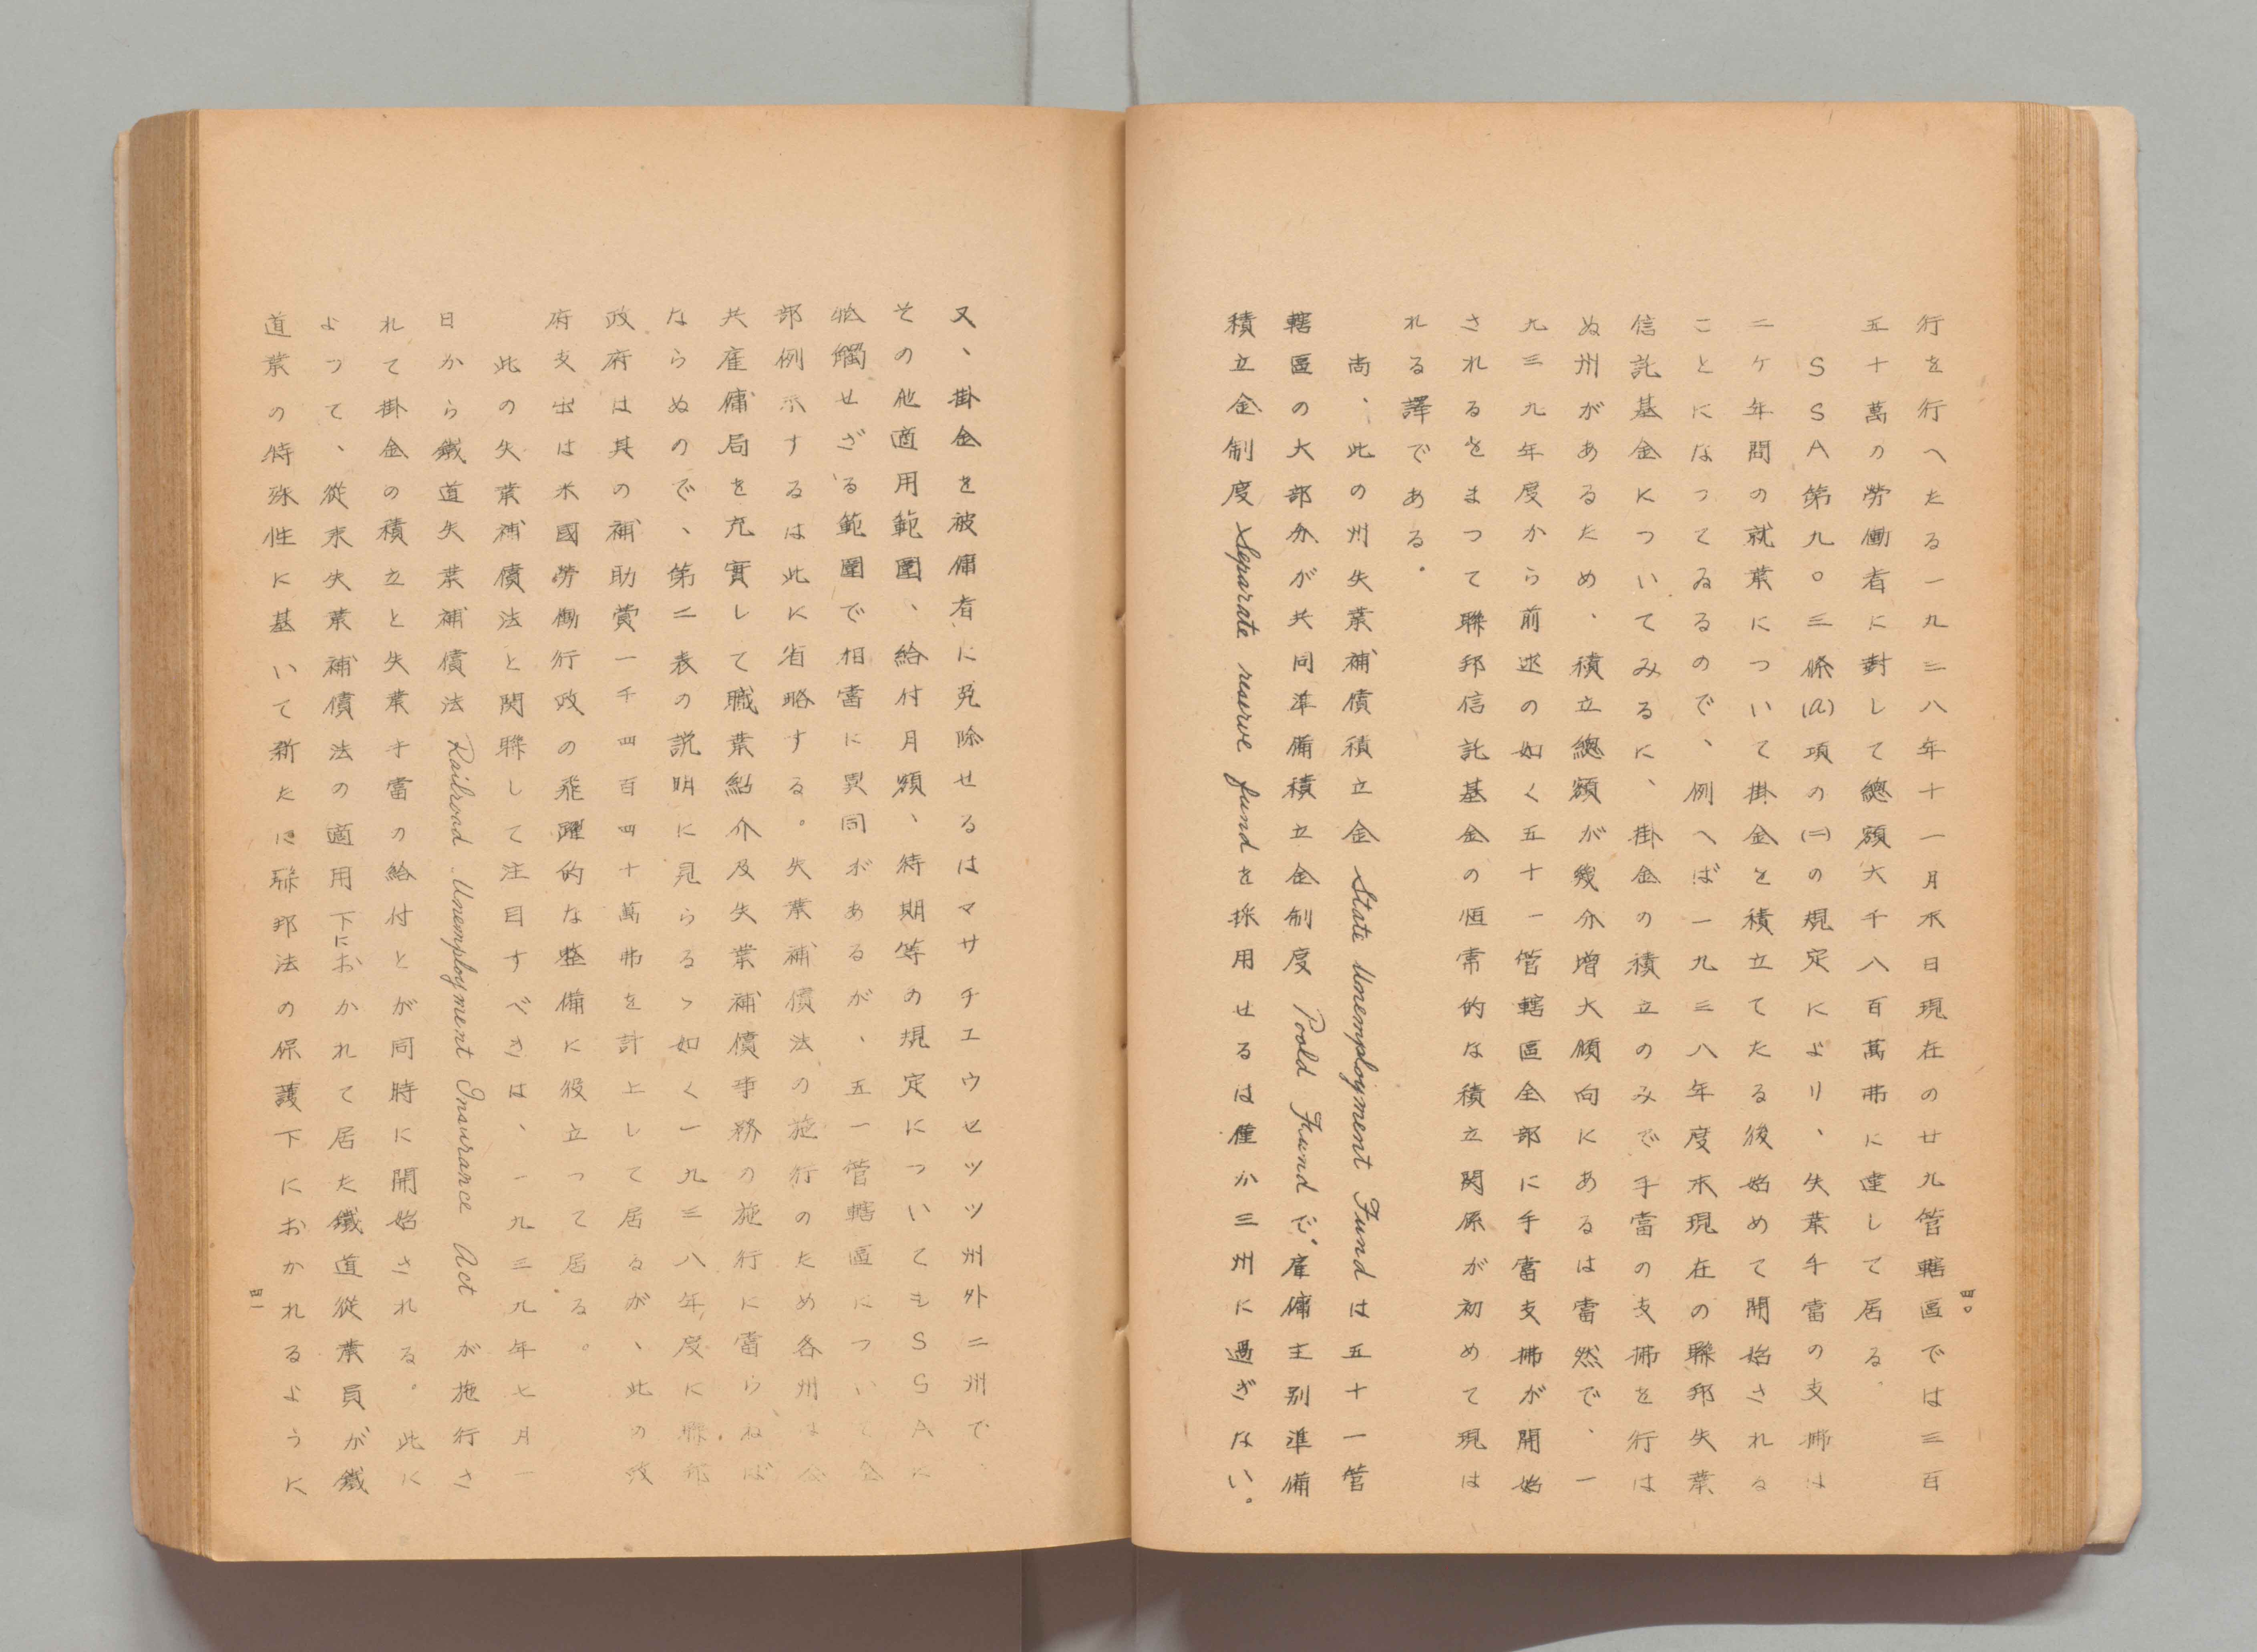 四〇
行を行へたる一九三八年十一月末日現在の廿九管轄區では三百
五十萬の勞働者に對して總額大千八百萬弗に達して居る.
SSA第九〇三條(a)項の(二)の規定により、失業手當の支拂は
二ケ年間の就業について掛金を積立てたる後始めて開始される
ことになつてゐるので、例へば一九三八年度末現在の聯邦失業
信託基金についてみるに、掛金の積立のみで手當の支拂を行は
ぬ州があるため、積立總額が幾分增大傾向にあるは當然で、一
九三九年度から前述の如く五十一管轄區全部に手當支拂が開始
されるをまつて聯邦信託基金の恒常的な積立関係が初めて現は
れる譯である.
尚、此の州失業補償積立金State Unemployment Fundは五十一管
轄區の大部分が共同準備積立金制度Poold Fundで雇傭主別準備
積立金制度Separate reserve fundを採用せるは僅か三州に過ぎない。
又、掛金を被傭者に免除せるはマサチエウセツツ州外二州で、
その他適用範圍、給付月額、待期等の規定についてもSSAに
牴觸せざる範圍で相當に異同があるが、五一管轄區について全
部例示するは此に省略する。失業補償法の施行のため各州は公
共雇傭局を充實して職業紹介及失業補償事務の施行に當らねば
ならぬので、第二表の説明に見らるゝ如く一九三八年度に聯邦
政府は其の補助賞一千四百四十萬弗を計上して居るが、此の政
府支出は米國勞働行政の飛躍的な整備に役立つて居る。
此の失業補償法と関聯して注目すべきは、一九三九年七月一
日から鐵道失業補償法Railroad Unemployment Insurance Actが施行さ
れて掛金の積立と失業手當の給付とが同時に開始される。此に
よつて、從來失業補償法の適用下におかれて居た鐵道從業員が鐵
道業の特殊性に基いて新たに聯邦法の保護下におかれるように
四一